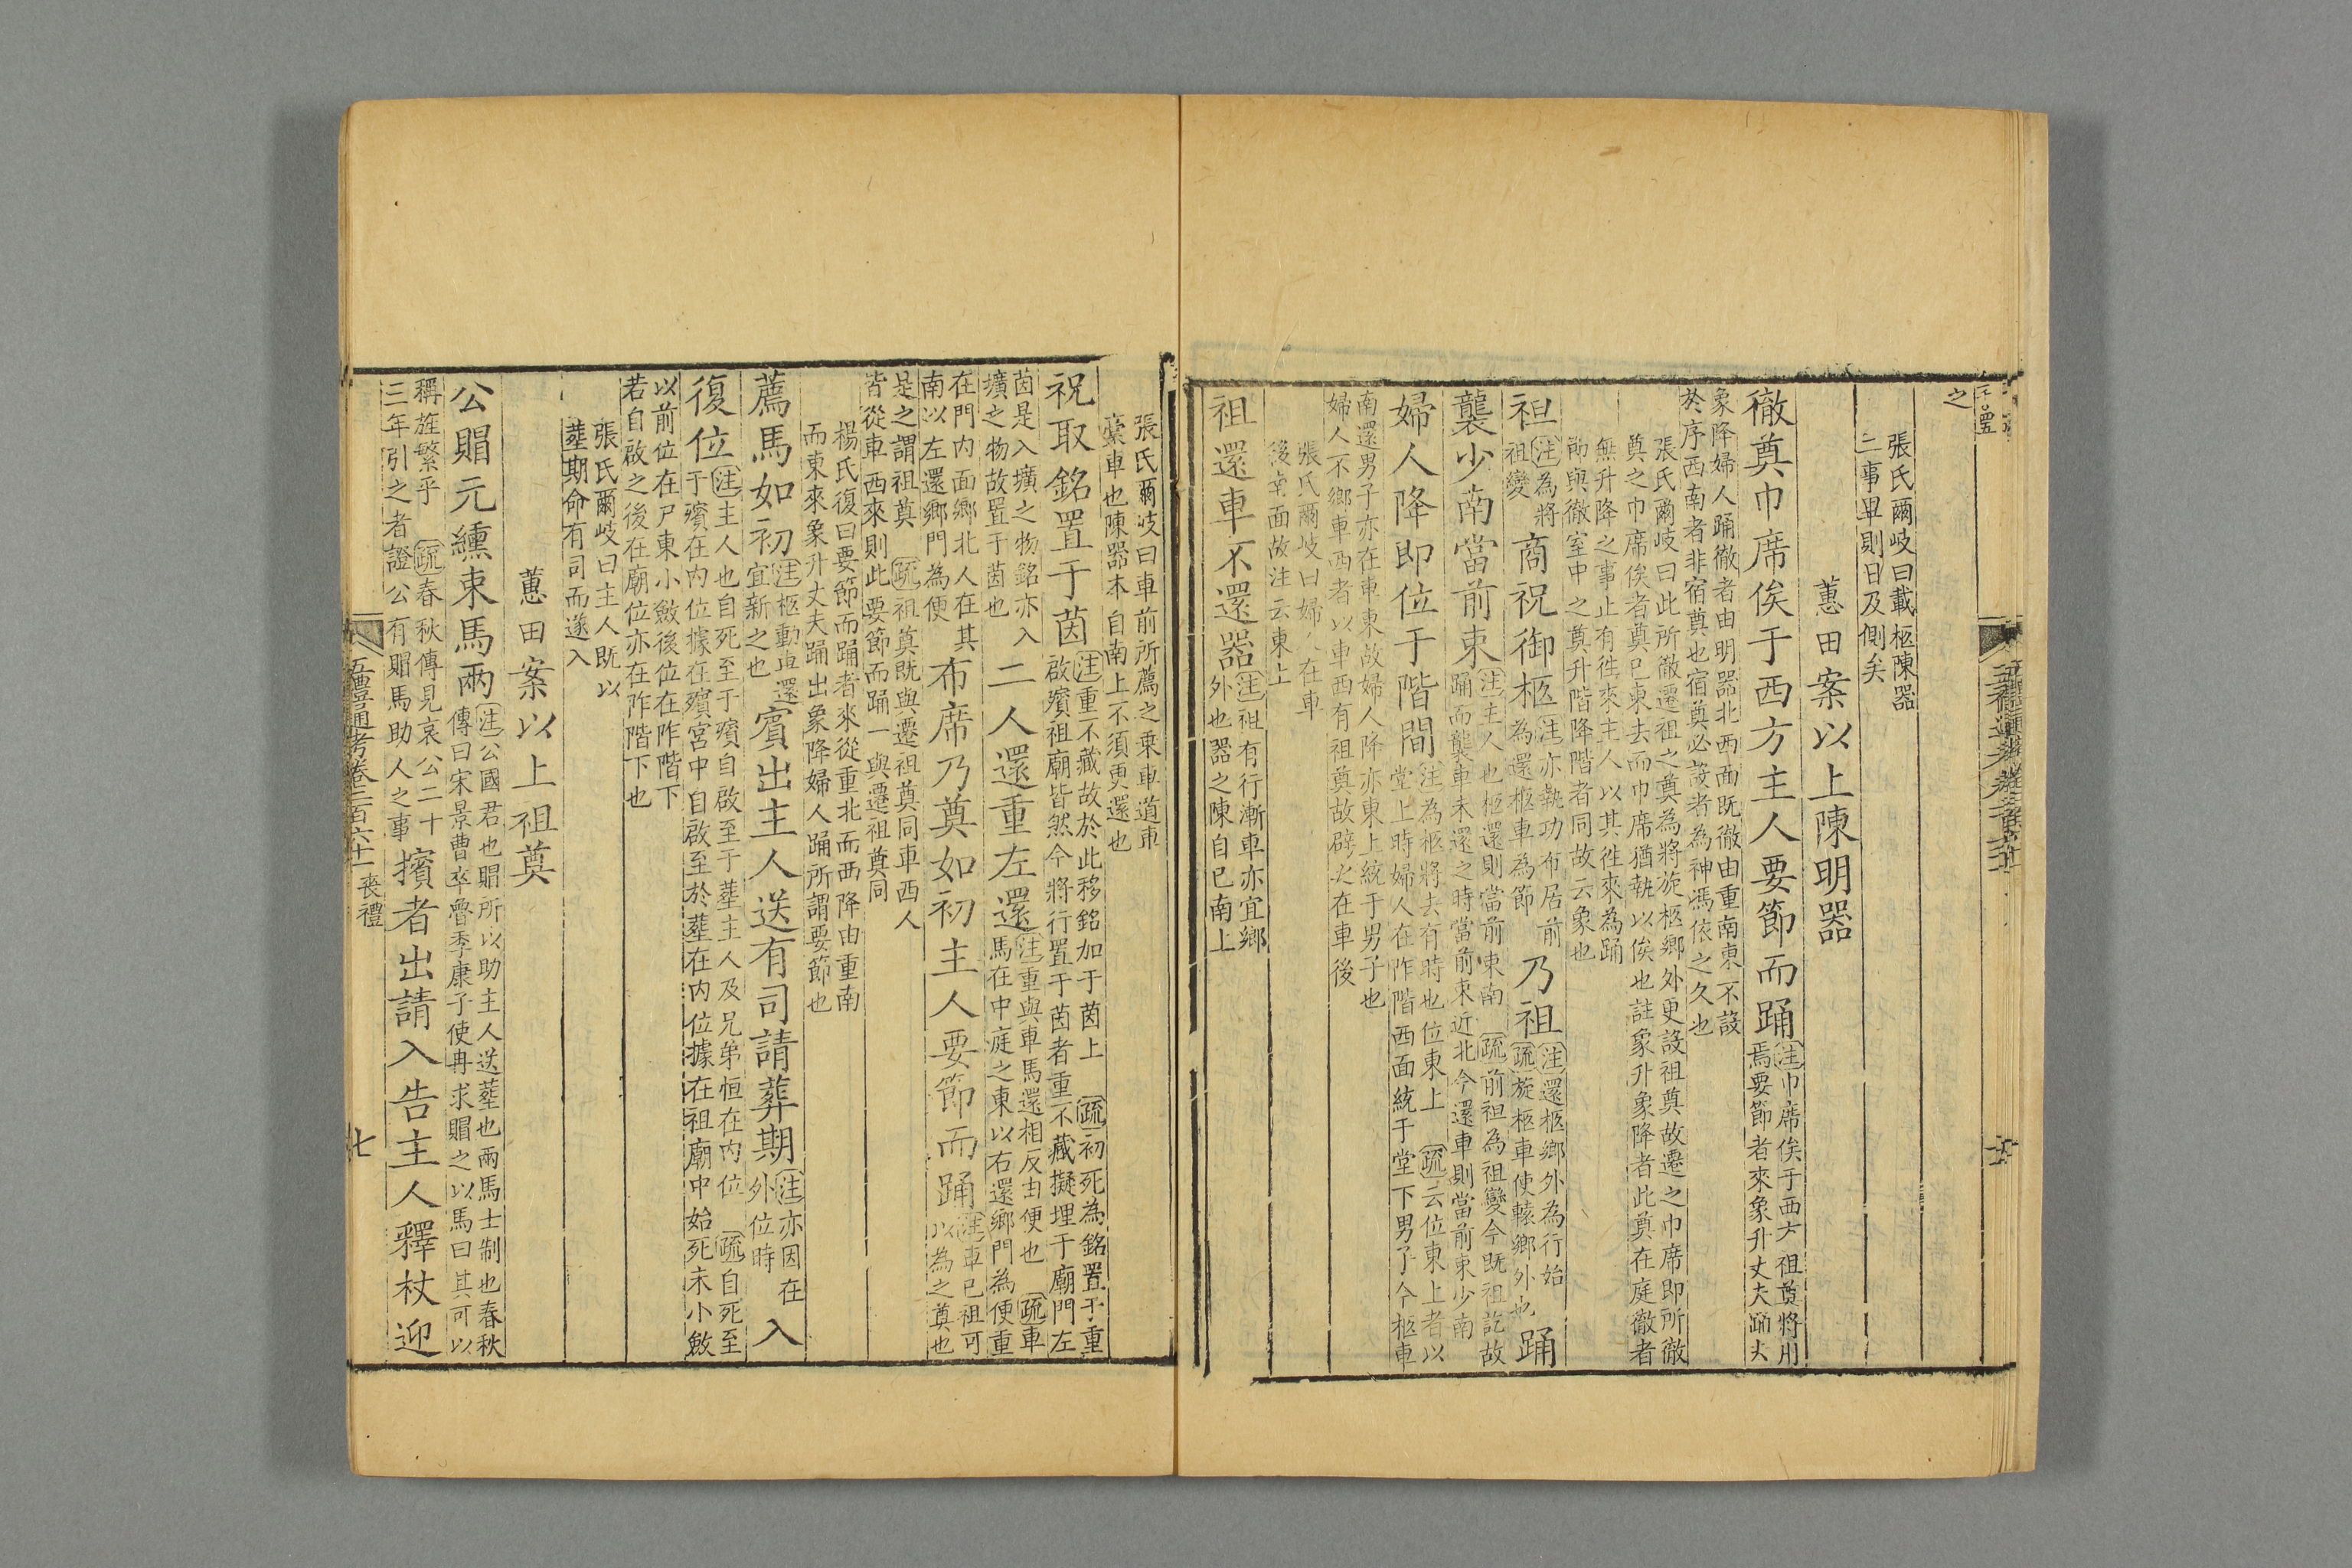 之
張氏爾岐曰載柩陳器
二事畢則日及側矣
蕙田案以上陳明器
徹奠巾席俟于西方主人要節而踊
注巾席俟于西方祖奠將用
焉要節者來象升丈夫踊去
象降婦人踊徹者由明器北西面既徹由重南東不設
於序西南者非宿奠也宿奠必設者為神馮依之久也
張氏爾岐曰此所徹遷祖之奠為將旋柩鄉外更設祖奠故遷之巾席即所徹
奠之巾席俟者奠已東去而巾席猶執以俟也註象升象降者此奠在庭徹者
無升降之事止有徃來主人以其徃來為踊
節與徹室中之奠升階降階者同故云象也
袒
注為將
祖變
商祝御柩
注亦執功布居前
為還柩車為節
乃祖
注還柩鄉外為行始
疏旋柩車使轅鄉外也
踊
襲少南當前束
注主人也柩還則當前束南
疏前袒為祖變今既祖訖故
踊而襲車未還之時當前束近北今還車則當前束少南
婦人降即位于階間
注為柩將去有時也位東上
疏云位東上者以
堂上時婦人在阼階西面統于堂下男子今柩車
南還男子亦在車東故婦人降亦東上統于男子也
婦人不鄉車西者以車西有祖奠故辟之在車後
張氏爾岐曰婦人在車
後南面故注云東上
祖還車不還器
注祖有行漸車亦宜鄉
外也器之陳自已南上
張氏爾岐曰車前所薦之乗車道車
槀車也陳器本自南上不須更還也
祝取銘置于茵
注重不藏故於此移銘加于茵上
疏初死為銘置于重
啟殯祖廟皆然今將行置于茵者重不藏擬埋于廟門左
茵是入壙之物銘亦入
壙之物故置于茵也
二人還重左還
注重與車馬還相反由便也
疏車
馬在中庭之東以右還鄉門為便重
在門内面鄉北人在其
南以左還鄉門為便
布席乃奠如初主人要節而踊
注車已祖可
以為之奠也
是之謂祖奠
疏祖奠既與遷祖奠同車西人
皆從車西來則此要節而踊一與遷祖奠同
楊氏復曰要節而踊者來從重北而西降由重南
而東來象升丈夫踊出象降婦人踊所謂要節也
薦馬如初
注柩動車還
宜新之也
賓出主人送有司請葬期
注亦因在
外位時
入
復位
注主人也自死至于殯自啟至于葬主人及兄弟恒在内位
疏自死至
于殯在内位據在殯宮中自啟至於葬在内位據在祖廟中始死未小斂
以前位在尸東小斂後位在阼階下
若自啟之後在廟位亦在阼階下也
張氏爾岐曰主人既以
葬期命有司而遂入
蕙田案以上祖奠
公賵元纁束馬兩
注公國君也賵所以助主人送葬也兩馬士制也春秋
傳曰宋景曹卒魯季康子使冉求賵之以馬曰其可以
稱旌繁乎
疏春秋傳見哀公二十
三年引之者證公有賵馬助人之事
擯者出請入告主人釋杖迎
五禮通考卷二百六十一
喪禮
七